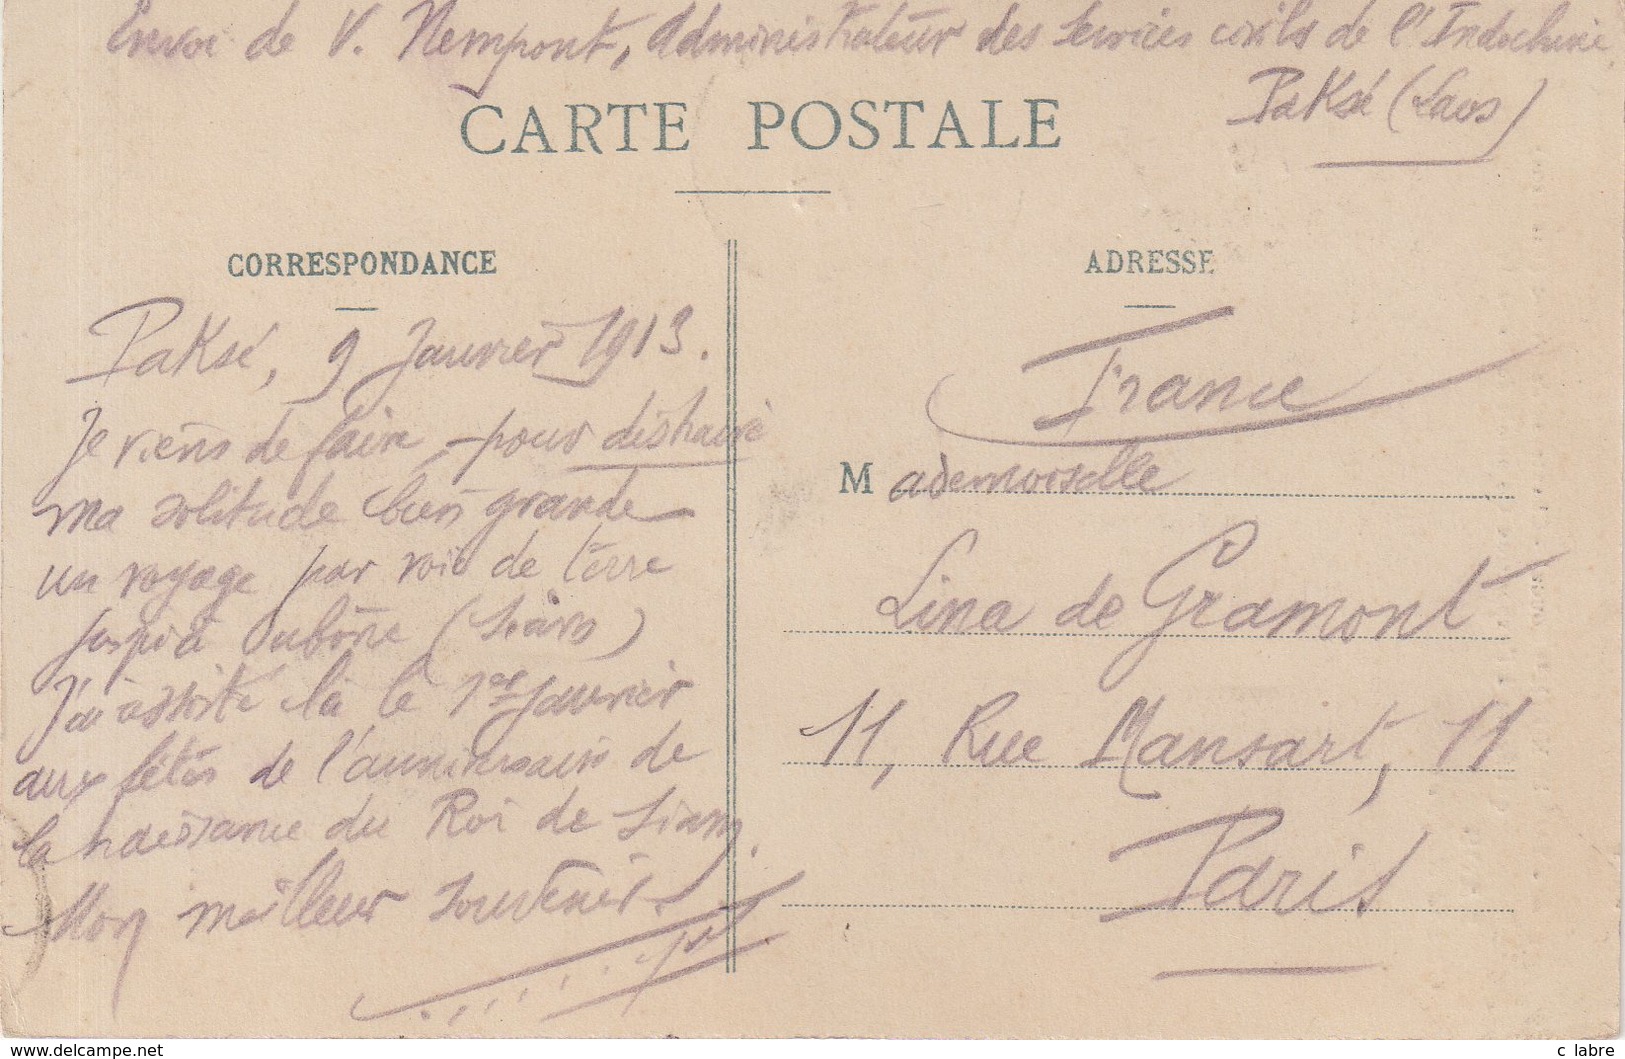 Envoi de V. Nempont, Administrateur des Services civils de l'Indochine
Paksé (Laos)
CARTE POSTALE
CORRESPONDANCE
Paksé, 9 Janvier 1913.
Je viens de faire, pour distraire
ma solitude bien grande
un voyage par voie de terre
jusqu'à Oubône (Siam)
J'ai assisté là le 1er Janvier
aux fêtes de l'anniversaire de
la naissance du Roi de Siam.
Mon meilleur souvenir.
ADRESSE
France
Mademoiselle
Lina de Gramont
11, Rue Mansart, 11
Paris
www.delcampe.net
c labre